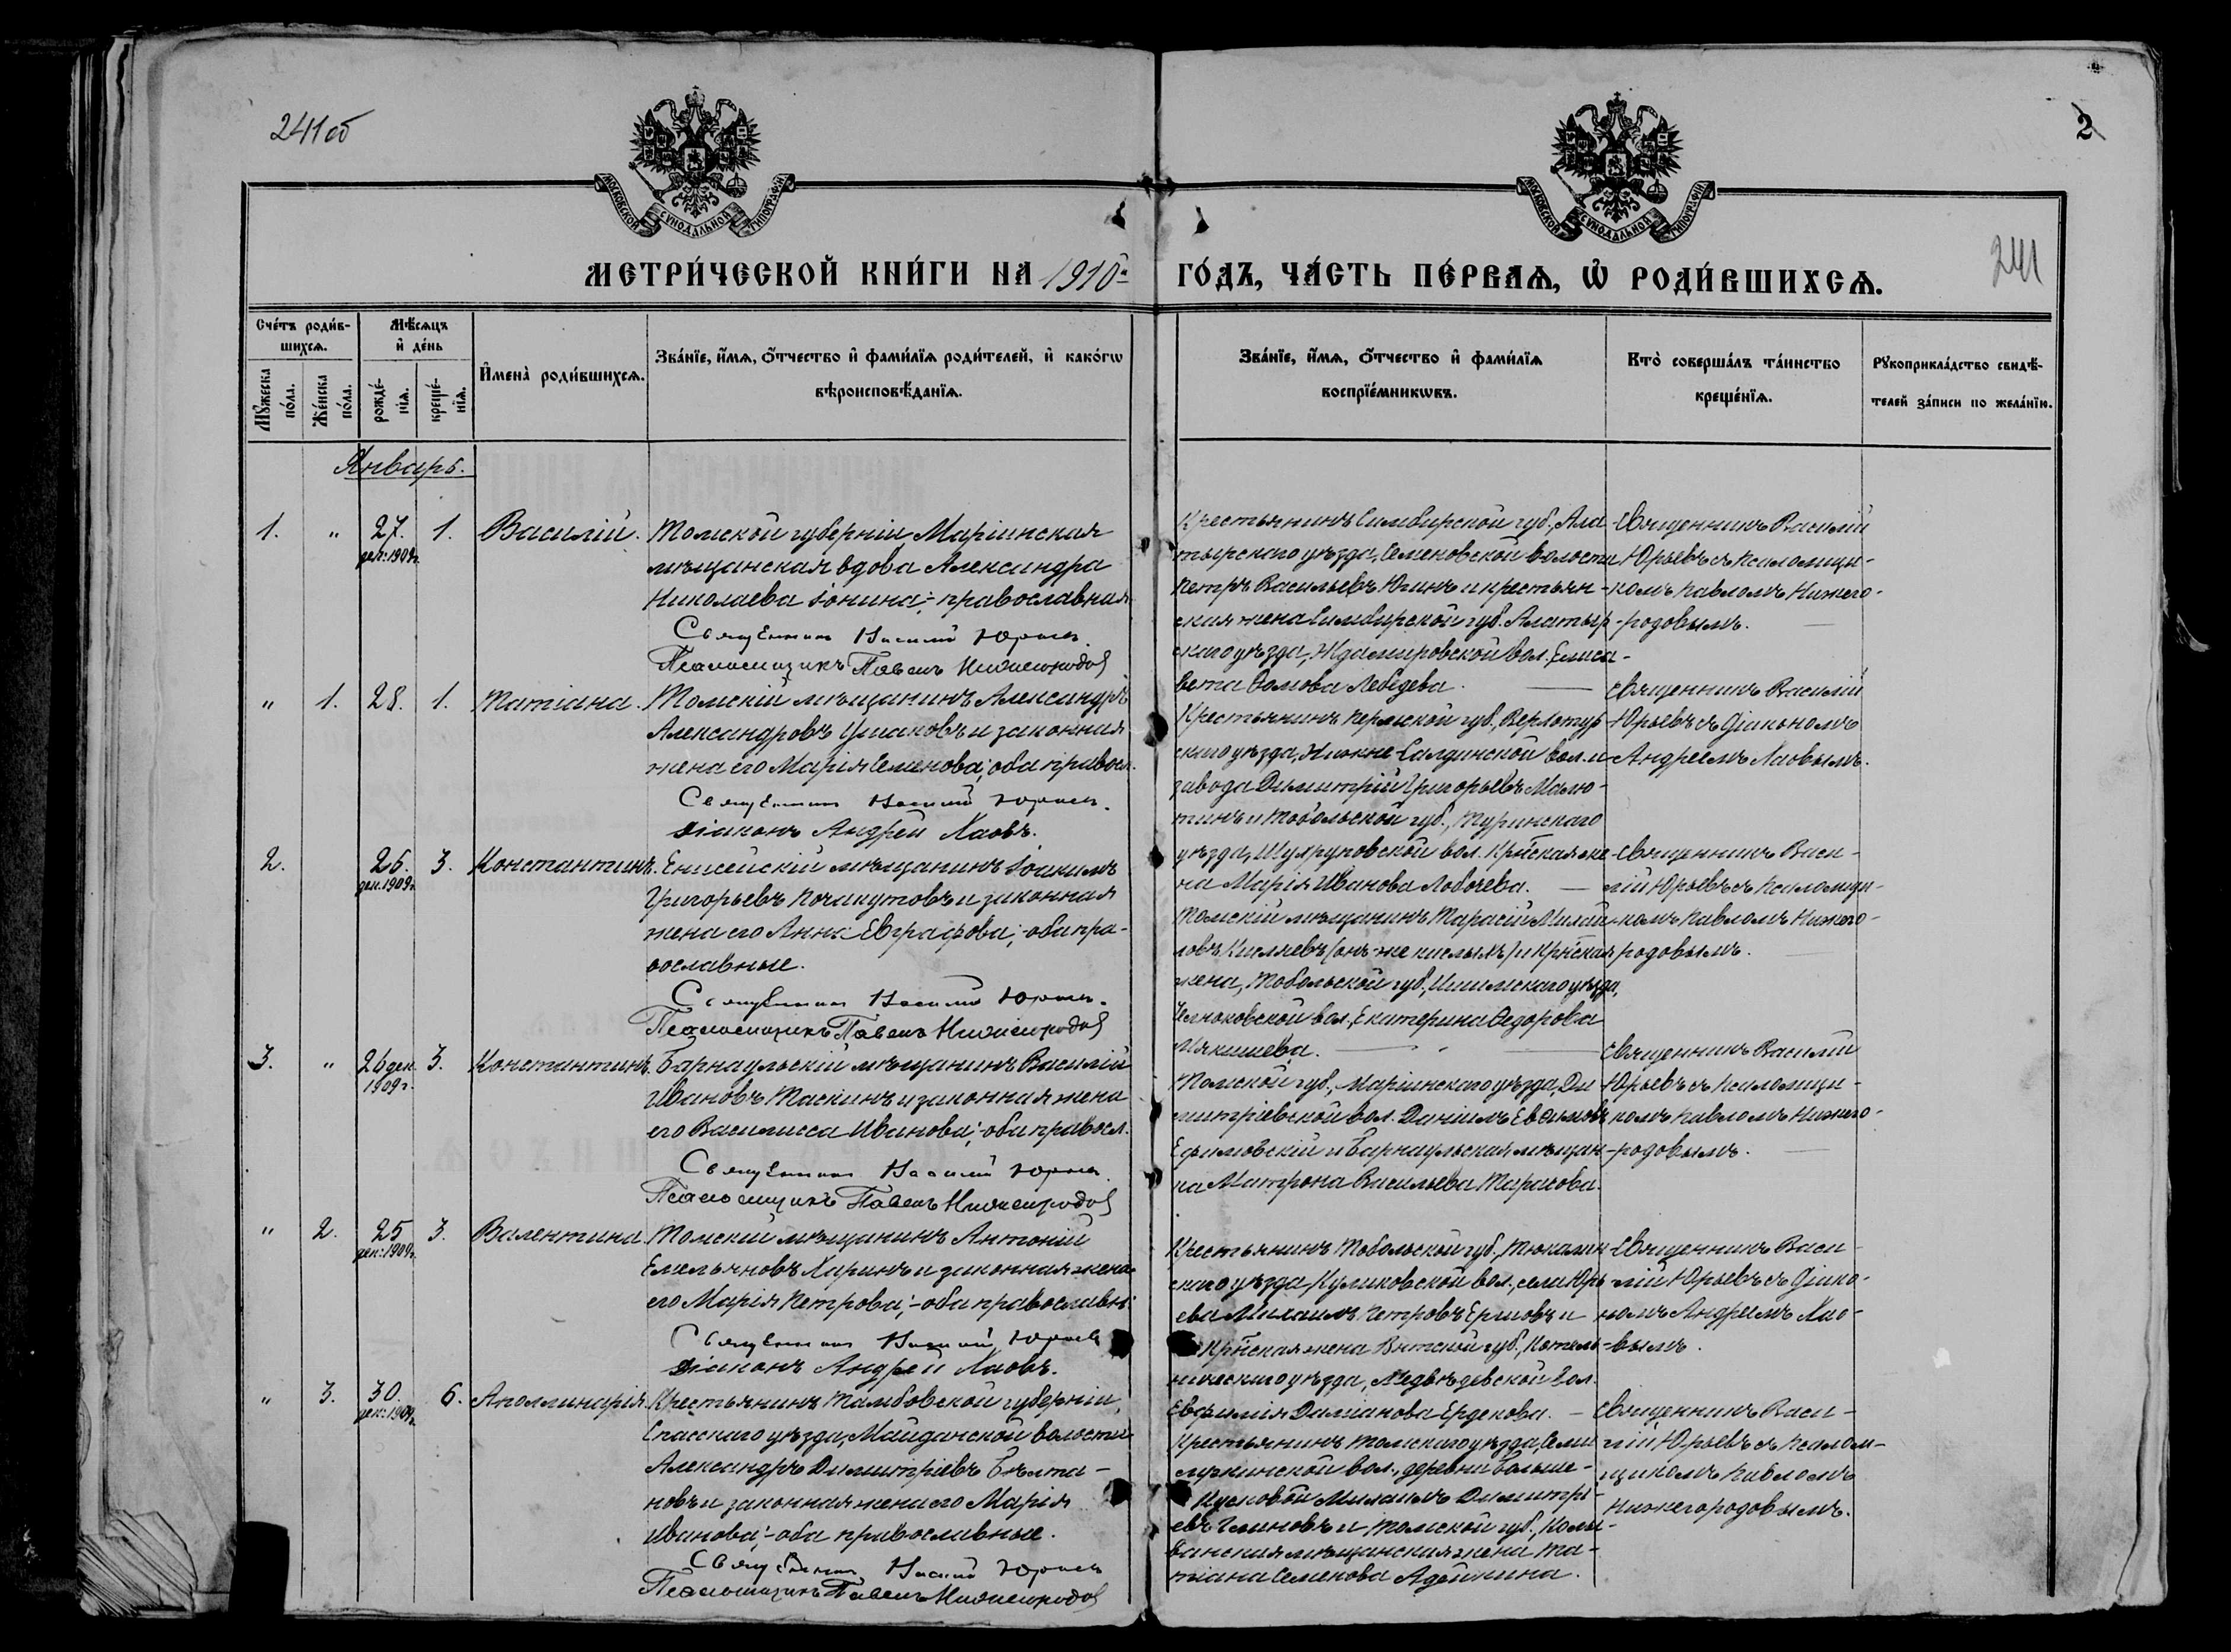 241об
2
241
МОСКОВСКОЙ СѴНОДАЛЬНОЙ ТИПОГРАФІИ
МОСКОВСКОЙ СѴНОДАЛЬНОЙ ТИПОГРАФІИ
МЕТРИ́ЧЕСКОЙ КНИ́ГИ НА 1910й
ГО́ДЪ, ЧА́СТЬ ПЕ́РВАѦ, Ѽ РОДИ́ВШИХСѦ.
Сче́тъ роди́в-
шихсѧ.
Мꙋ́жеска по́ла.
Же́нска по́ла.
Мѣ́сѧцъ и҆ де́нь
рожде́-нїѧ.
креще́-нїѧ.
И҆мена̀ роди́вшихсѧ.
Зва́нїе, и҆́мѧ, ѻ҆́тчество и҆ фами́лїѧ роди́телей, и҆ како́гѡ
вѣроисповѣ́данїѧ.
Зва́нїе, и҆́мѧ, ѻ҆́тчество и҆ фами́лїѧ
воспрїе́мникѡвъ.
Кто̀ соверша́лъ та́инство
креще́нїѧ.
Рꙋкоприкла́дство свидѣ́-
телей за́писи по жела́нїю.
Январь.
1. " 27. дек: 1909г. 1. Василій.
Томской губерніи Маріинская
мѣщанская вдова Александра
Николаева Іонина; - православная
Священникъ Василій Юрьевъ.
Псаломщикъ Павелъ Нижегородов
Крестьянинъ Симбирской губ., Ала-
тырскаго уѣзда, Семеновской волости
Петръ Васильевъ Юнинъ и крестьян-
ская жена Симбирской губ. Алатыр-
скаго уѣзда, Ждамировской вол. Елиса-
вета Ѳомова Лебедева.
Священникъ Василій
Юрьевъ съ псаломщи-
комъ Павломъ Нижего-
родовымъ.
" 1. 28. 1. Татіана.
Томскій мѣщанинъ Александръ
Александровъ Ушаковъ и законная
жена его Марія Семенова; оба правосл.
Священникъ Василій Юрьевъ.
Діаконъ Андрей Хаовъ.
Крестьянинъ Пермской губ., Верхотур-
скаго уѣзда, Нижне-Салдинской вол. и
завода Димитрій Григорьевъ Малю-
тинъ и Тобольской губ., Туринскаго
уѣзда, Шухруповской вол. Кр-ская же-
на Марія Иванова Лобачева.
Священникъ Василій
Юрьевъ съ діакономъ
Андреемъ Хаовымъ.
2. 26. дек. 1909г. 3. Константинъ.
Енисейскій мѣщанинъ Іоакимъ
Григорьевъ Почекутовъ и законная
жена его Анна Евграфова; - оба пра-
вославные.
Священникъ Василій Юрьевъ.
Псаломщикъ Павелъ Нижегородов
Томскій мѣщанинъ Тарасій Михай-
ловъ Кисляевъ (онъ-же Кислыхъ) и Кр-ская
жена, Тобольской губ., Ишимскаго уѣзда,
Челноковской вол., Екатерина Ѳедорова
Мякишева.
Священникъ Васи-
лій Юрьевъ съ псаломщи-
комъ Павломъ Нижего-
родовымъ.
3. " 26 дек. 1909г. 3. Константинъ.
Барнаульскій мѣщанинъ Василій
Ивановъ Таскинъ и законная жена
его Василисса Иванова; - оба правосл.
Священникъ Василій Юрьевъ.
Псаломщикъ Павелъ Нижегородов
Томской губ., Маріинскаго уѣзда, Ди-
митріевской вол. Даніилъ Евѳимовъ
Ефимовскій и Барнаульская мѣщан-
ка Матрона Васильева Тарасова.
Священникъ Василій
Юрьевъ съ псаломщи-
комъ Павломъ Нижего-
родовымъ.
" 2. 25 дек: 1909г. 3. Валентина.
Томскій мѣщанинъ Антоній
Емельяновъ Харинъ и законная жена
его Марія Петрова; - оба православны.
Священникъ Василій Юрьевъ
Діаконъ Андрей Хаовъ.
Крестьянинъ Тобольской губ., Тюкалин-
скаго уѣзда, Куликовской вол., села Юрь-
ева Михаилъ Петровъ Ершовъ и
Кр-ская жена Вятской губ., Котель-
ническаго уѣзда, Медвѣдевской вол.
Евфимія Даміанова Ердекова.
Священникъ Васи-
лій Юрьевъ съ діако-
номъ Андреемъ Хао-
вымъ.
" 3. 30. дек: 1909г. 6. Аполлинарія.
Крестьянинъ Тамбовской губерніи,
Спасскаго уѣзда, Майданской волости
Александръ Димитріевъ Бѣлта-
новъ и законная жена его Марія
Иванова; - оба православные.
Священникъ Василій Юрьевъ
Псаломщикъ Павелъ Нижегородов
Крестьянинъ Томскаго уѣзда, Семи-
лужинской вол., деревни Больше-
Кусковой Михаилъ Димитрі-
евъ Чминовъ и Томской губ., Колы-
ванская мѣщанская жена Та-
тіана Семенова Адейкина.
Священникъ Васи-
лій Юрьевъ съ псалом-
щикомъ Павломъ
Нижегородовымъ.